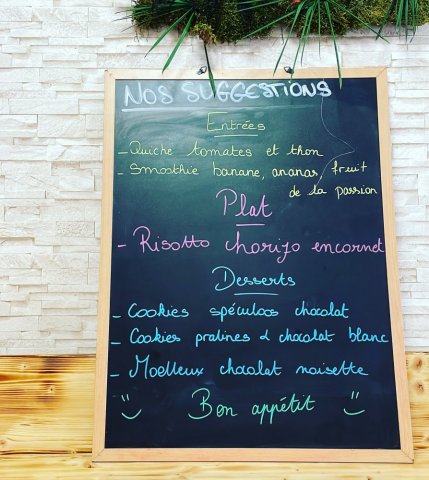 NOS SUGGESTIONS
Entrées
- Quiche tomates et thon
- Smoothie banane, ananas, fruit
de la passion
Plat
- Risotto chorizo encornet
Desserts
- Cookies spéculos chocolat
- Cookies pralines & chocolat blanc
- Moelleux chocolat noisette
Bon appétit